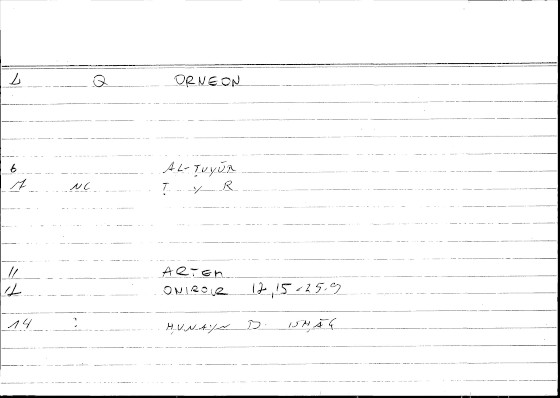 1 Q ORNEON
6 AL-ṬUYŪR
7 NC Ṭ Y R
11 ARTEM
12 ONIROIR 12,15-25.9
14 : ḤUNAYN B. ISḤĀQ